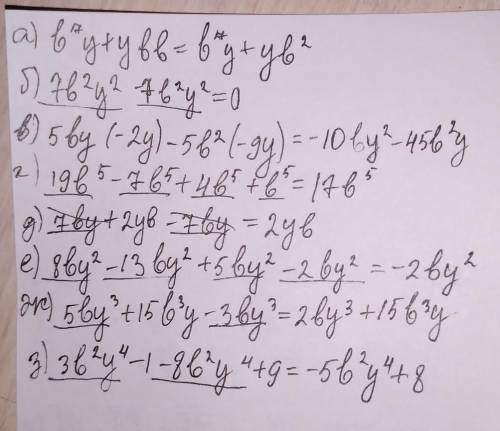 а) в⁷y + yвв = в⁷y + yв²
б) 7в²y² - 7в²y² = 0
в) 5вy (-2y) - 5в² (-9y) = -10вy² - 45в²y
г) 19в⁵ - 7в⁵ + 4в⁵ + в⁵ = 17в⁵
д) 7вy + 2yв - 7вy = 2yв
е) 8вy² - 13вy² + 5вy² - 2вy² = -2вy²
ж) 5вy³ + 15в³y - 3вy³ = 2вy³ + 15в³y
з) 3в²y⁴ - 1 - 8в²y⁴ + 9 = -5в²y⁴ + 8